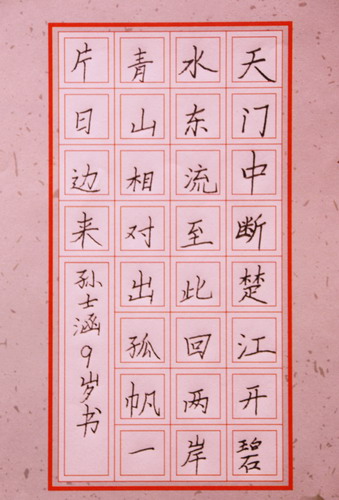 天门中断楚江开碧
水东流至此回两岸
青山相对出孤帆一
片日边来
孙士涵9岁书